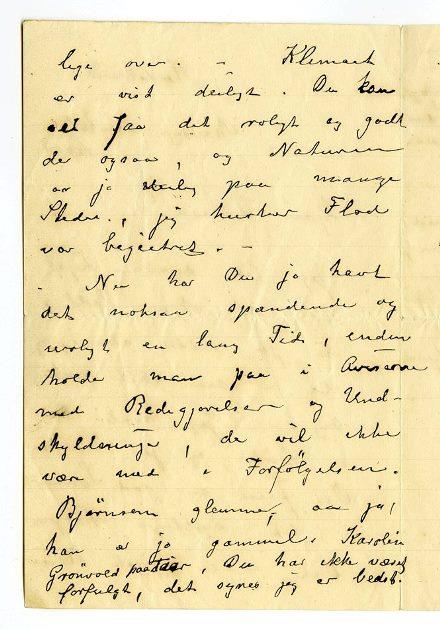 lige over. – Klimaet
er vist deiligt. Du kan
faa det roligt og godt
der ogsaa, og Naturen
er jo deilig paa mange
Steder, jeg husker Flod
var begeistret. –
Nu har Du jo havt
det noksaa spændende og
uroligt en lang Tid, endnu
holder man paa i Aviserne
med Redegjørelser og Und-
skyldninger, de vil ikke
være med i Forfölgelsen.
Bjørnsen glemmer, aa ja,
han er jo gammel. Karoline
Grönvold paastaar, Du har ikke været
forfulgt, det synes jeg er bedst.